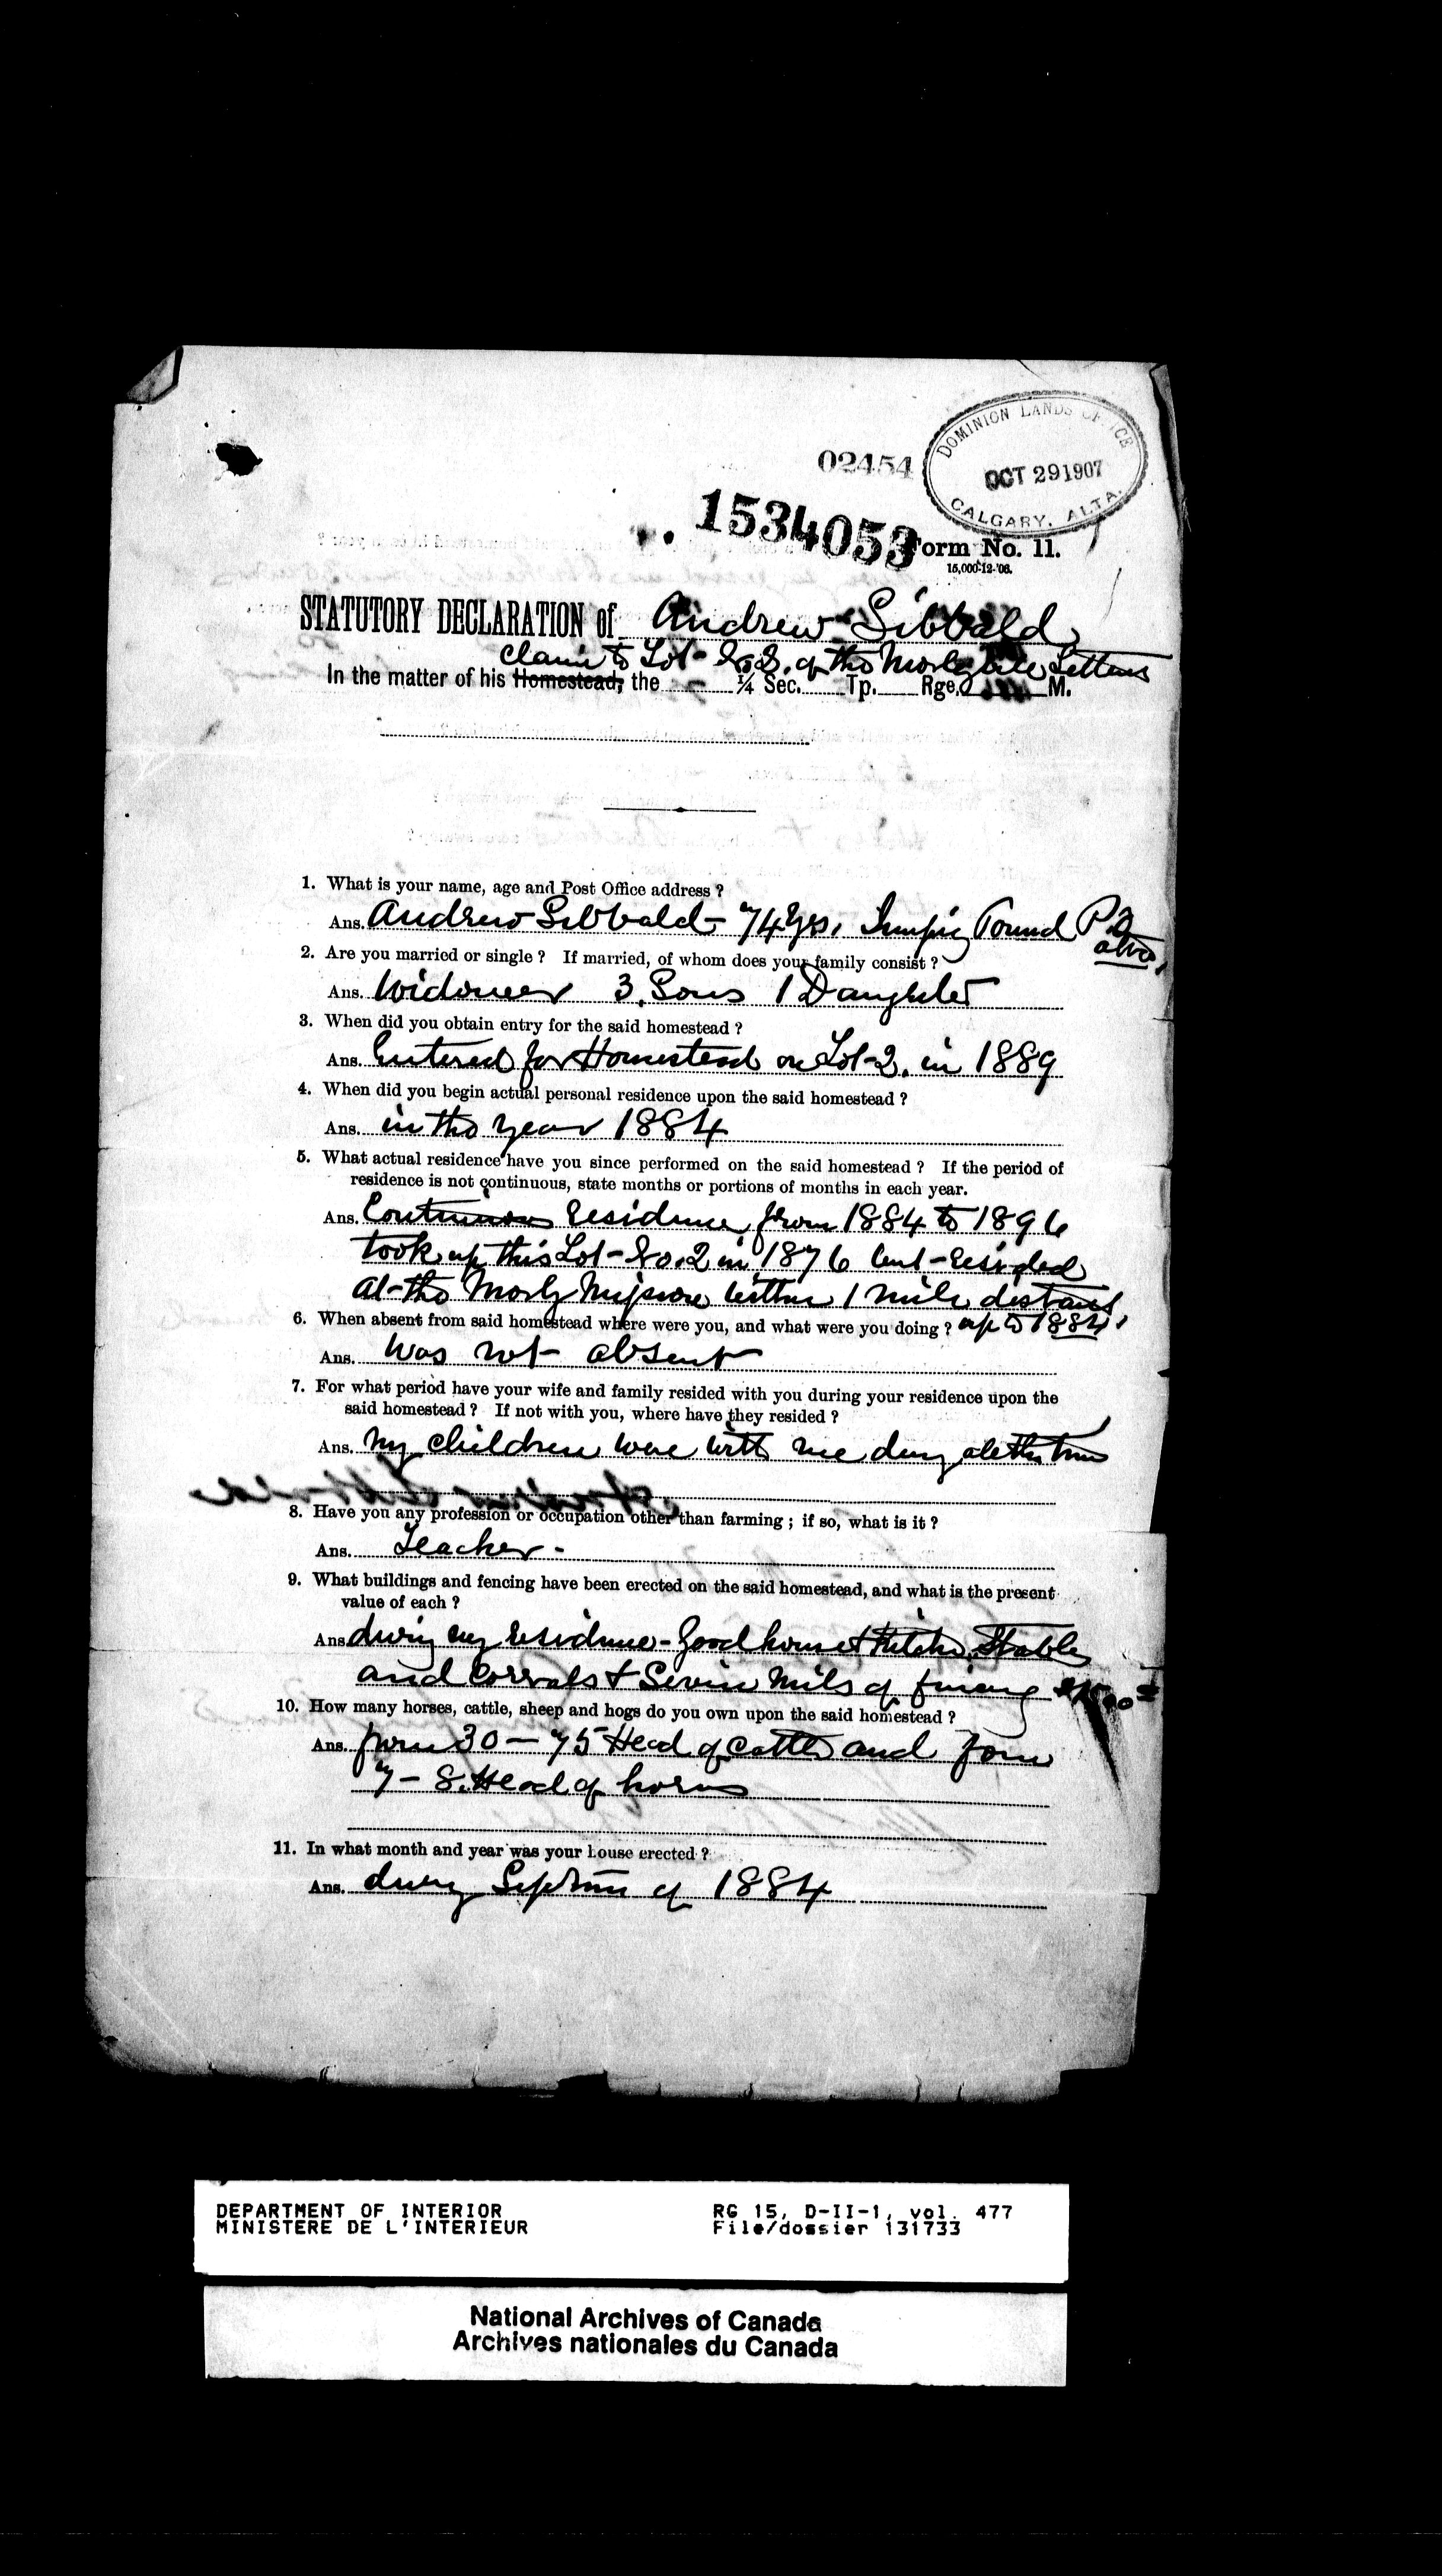 DOMINION LANDS OFFICE
OCT 29 1907
CALGARY, ALTA.
02454
1534053
Form No. 11.
15,000-12-'06.
STATUTORY DECLARATION of Andrew Sibbald
claim to Lot No 2. of the Morleyville Settlement
In the matter of his Homestead, the ¼ Sec. Tp. Rge. M.
1. What is your name, age and Post Office address ?
Ans. Andrew Sibbald 74 Yrs, Jumping Pound P.O
Alta.
2. Are you married or single ? If married, of whom does your family consist ?
Ans. Widower 3 Sons 1 Daughter
3. When did you obtain entry for the said homestead ?
Ans. Entered for Homestead on Lot 2. in 1889
4. When did you begin actual personal residence upon the said homestead ?
Ans. in the year 1884
5. What actual residence have you since performed on the said homestead ? If the period of
residence is not continuous, state months or portions of months in each year.
Ans. Continuous residence from 1884 to 1896
took up this Lot No. 2 in 1876 but resided
at the Morley Mission within 1 mile distant
6. When absent from said homestead where were you, and what were you doing ? up to 1884.
Ans. Was not absent
7. For what period have your wife and family resided with you during your residence upon the
said homestead ? If not with you, where have they resided ?
Ans. My children were with me during all the time
8. Have you any profession or occupation other than farming ; if so, what is it ?
Ans. Teacher -
9. What buildings and fencing have been erected on the said homestead, and what is the present
value of each ?
Ans. during my residence - Good house & Kitchen, Stables
and Corrals & Seven Miles of fencing
10. How many horses, cattle, sheep and hogs do you own upon the said homestead ?
Ans. from 30 - 75 Head of Cattle and from
7 - 8. Head of horses
11. In what month and year was your house erected ?
Ans. during of 1884
DEPARTMENT OF INTERIOR
MINISTERE DE L'INTERIEUR
RG 15, D-II-1, vol. 477
File/dossier 131733
National Archives of Canada
Archives nationales du Canada